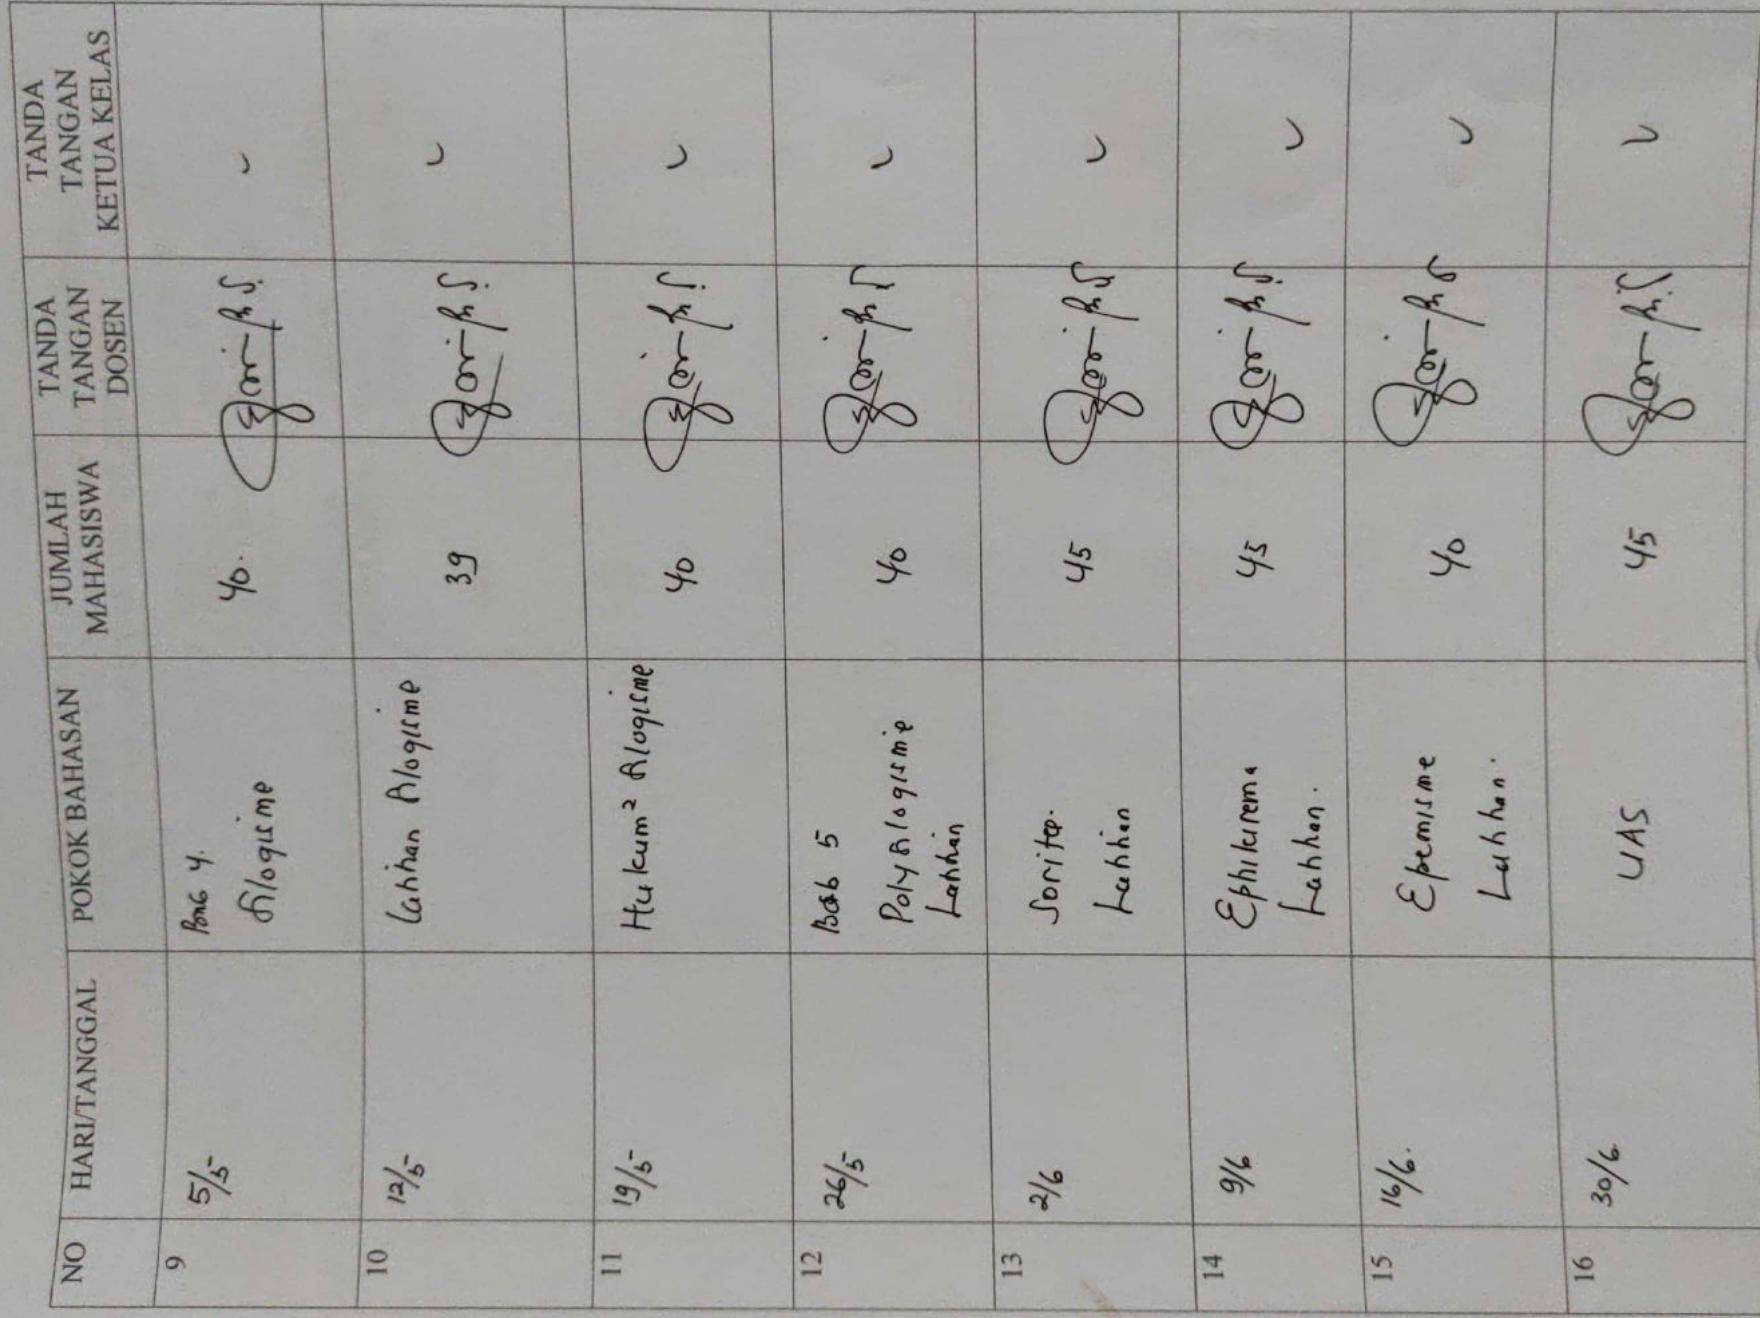 NO HARI/TANGGAL POKOK BAHASAN JUMLAH MAHASISWA TANDA TANGAN DOSEN TANDA TANGAN KETUA KELAS
9 5/5 Bab 4. Silogisme 40.
10 12/5 Latihan Silogisme 39
11 19/5 Hukum² Silogisme 40
12 26/5 Bab 5 Polysilogisme Latihan 40
13 2/6 Sorites. Latihan 45
14 9/6 Ephikurema Latihan. 45
15 16/6. Epemisme Latihan. 40
16 30/6 UAS 45